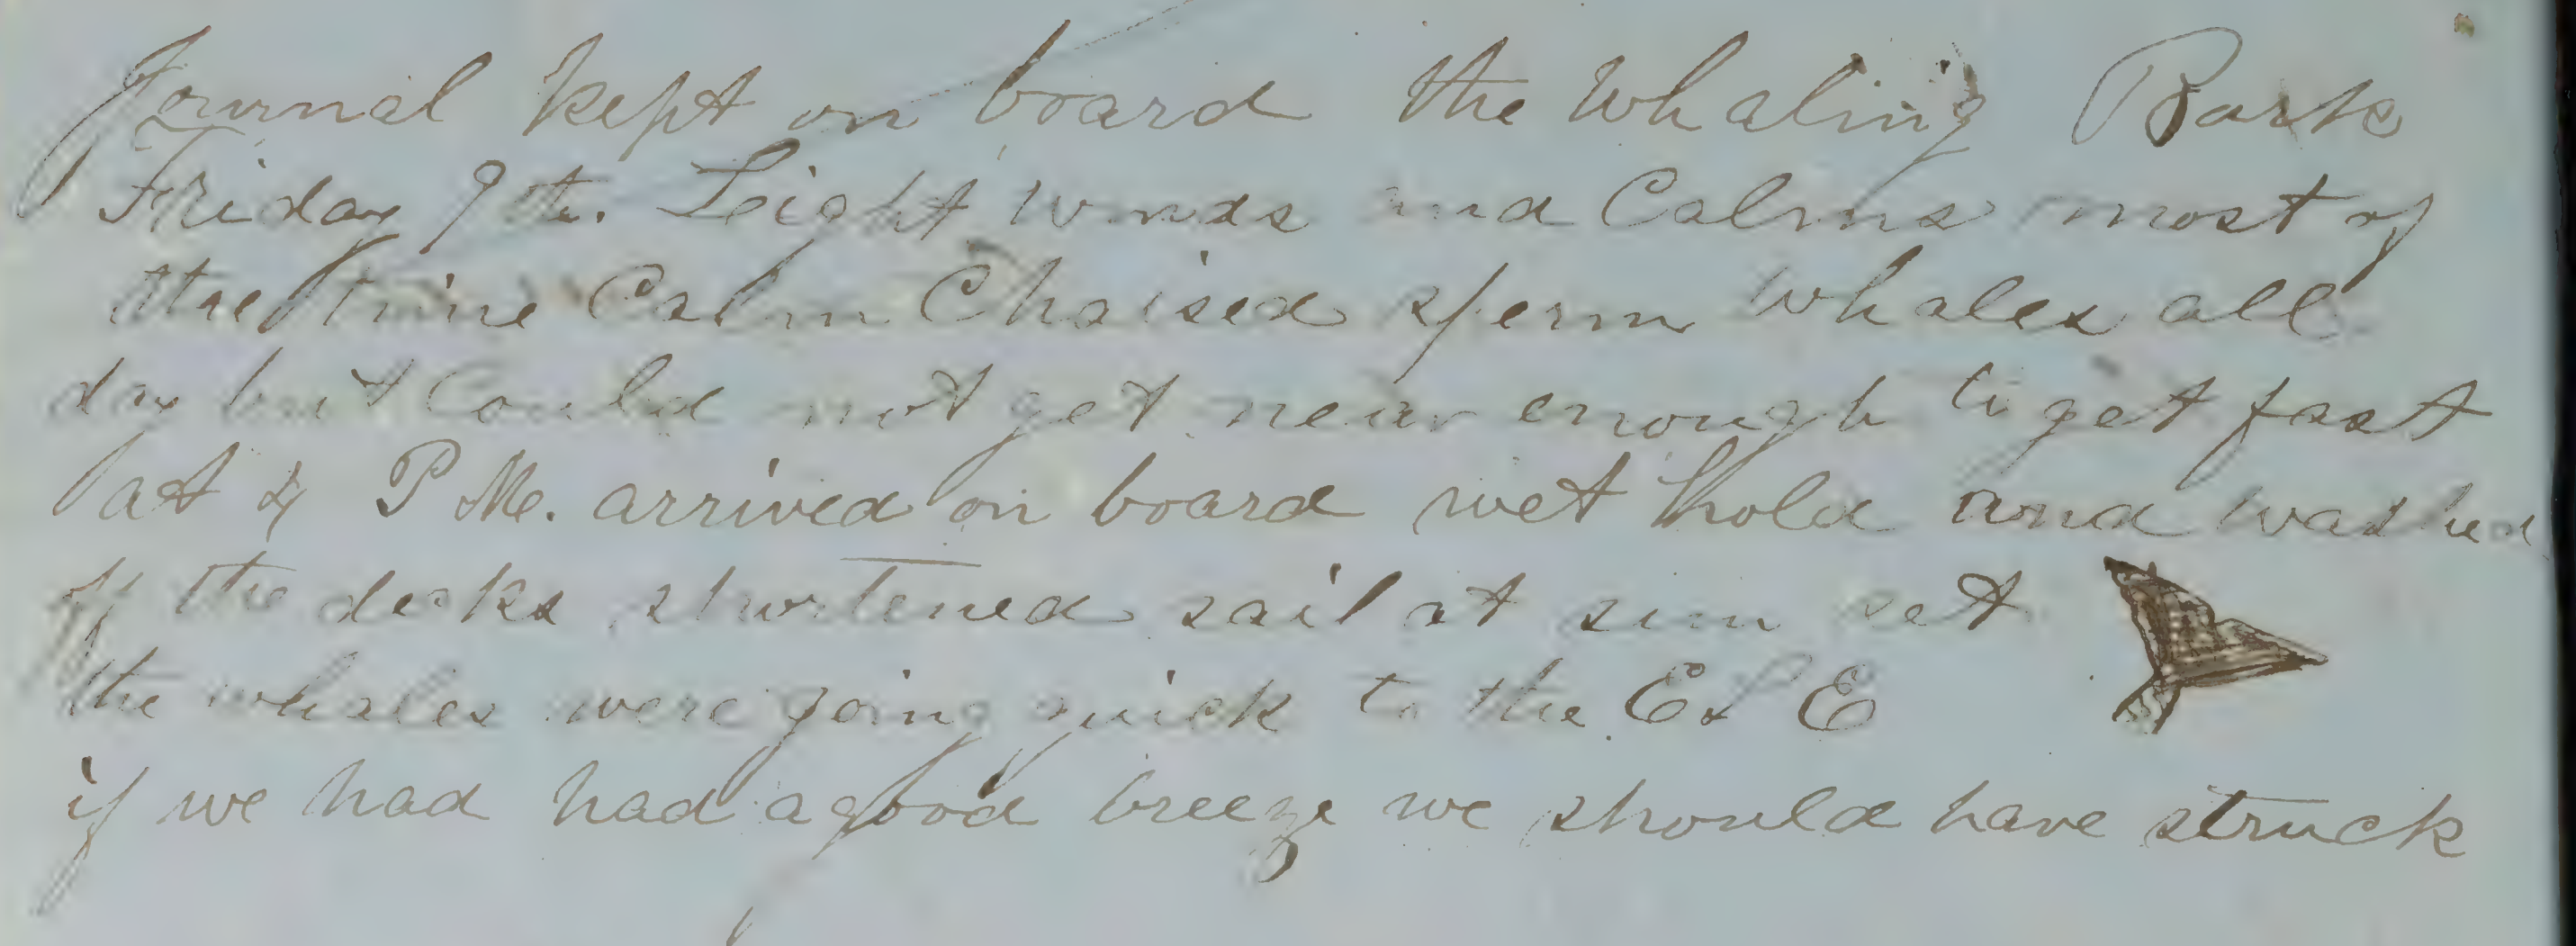 Journal kept on board the Whaling Bark
Friday 9th. Leight winds and Calms most of
the time Calm Chaised sperm whales all
day but Could not get near enough to get fast
at 4 P M. arrived on board wet hold and washed
of the decks shortened sail at sun set
the whales were going quick to the E S E
if we had had a good breeze we should have struck